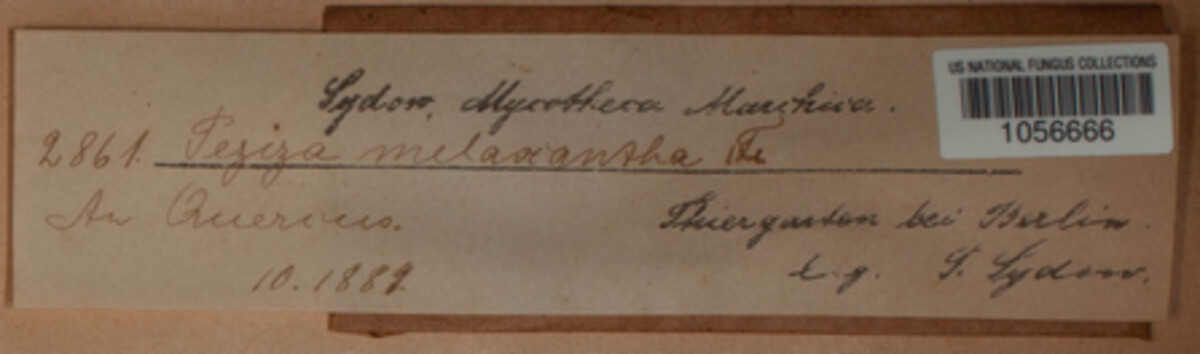 US NATIONAL FUNGUS COLLECTIONS
1056666
Sydow, Mycotheca Marchica.
2861. Peziza melaxantha Fr.
An Quercus.
Thiergarten bei Berlin.
10.1889.
l. g. P. Sydow.